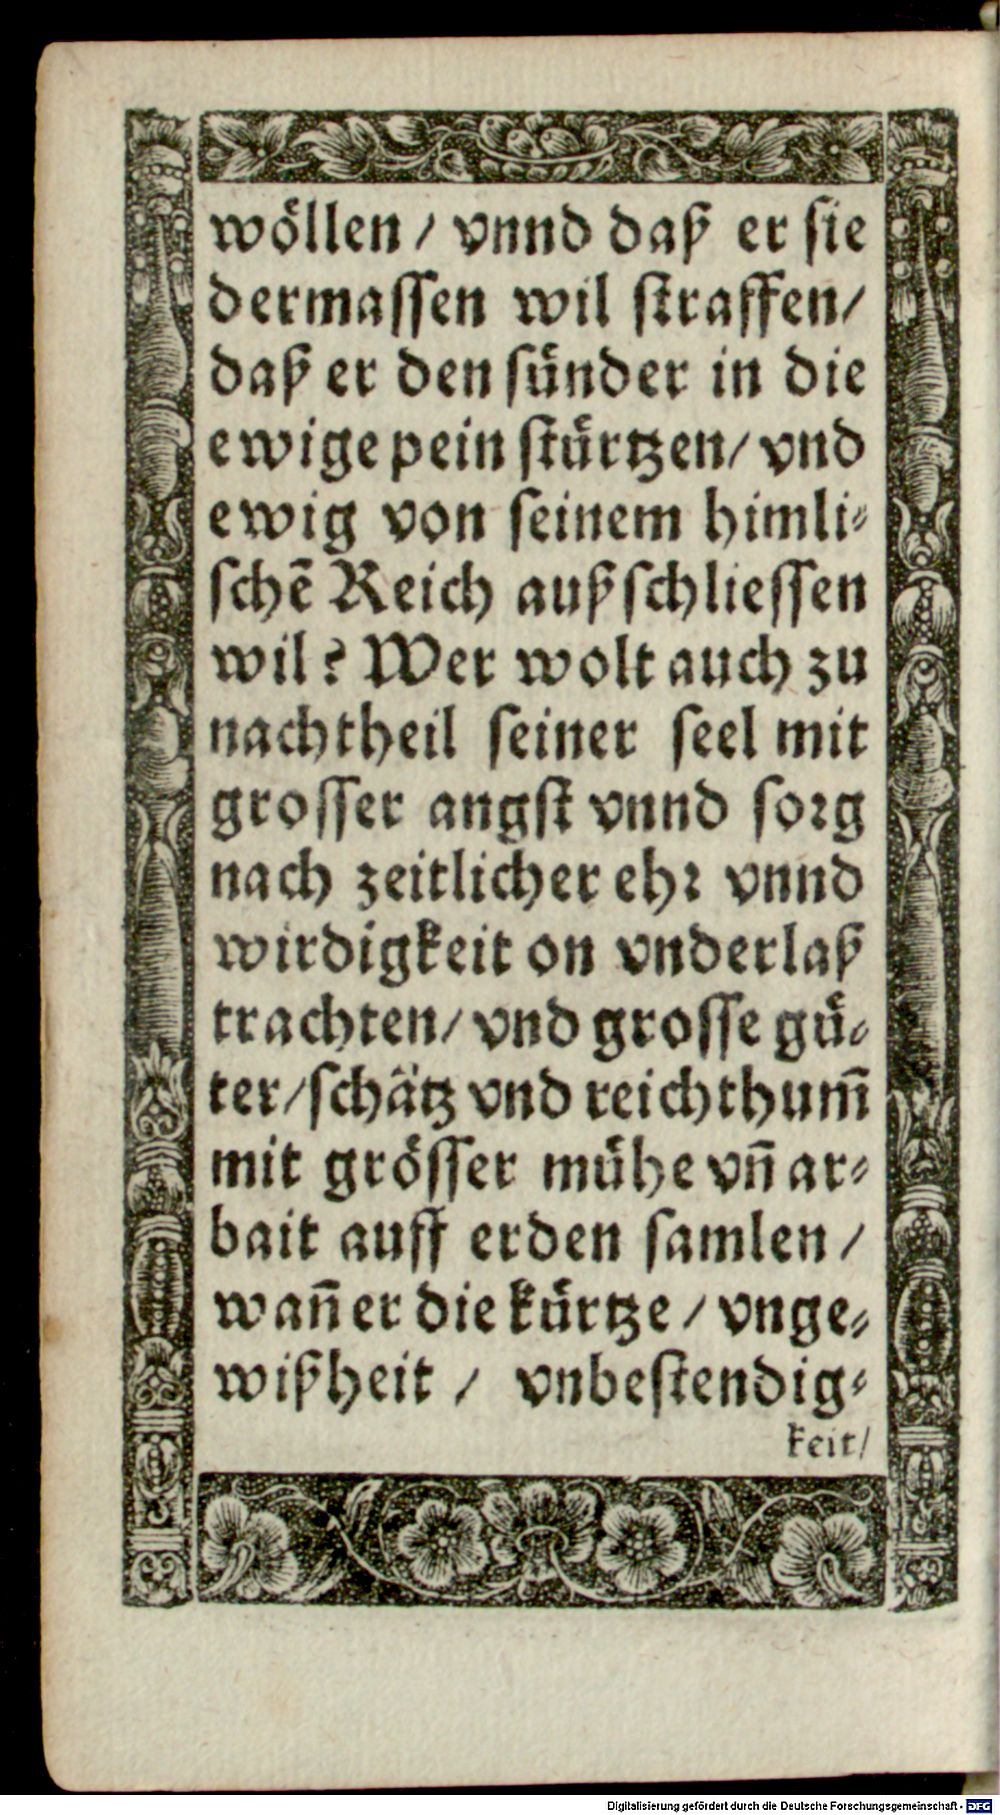 wöllen / vnnd daß er sie
dermassen wil straffen/
daß er den sünder in die
ewige pein stürtzen/ vnd
ewig von seinem himli-
schē Reich außschliessen
wil? Wer wolt auch zu
nachtheil seiner seel mit
grosser angst vnnd sorg
nach zeitlicher ehr vnnd
wirdigkeit on vnderlaß
trachten/ vnd grosse gü-
ter/schätz vnd reichthum̄
mit grösser mühe vn̄ ar-
bait auff erden samlen /
wan̄ er die kürtze / vnge-
wißheit / vnbestendig-
keit/
Digitalisierung gefördert durch die Deutsche Forschungsgemeinschaft - DFG